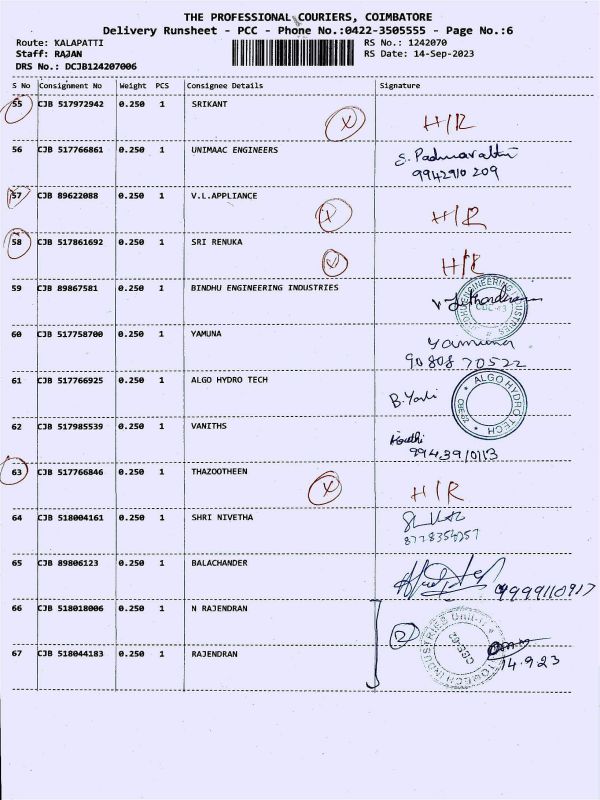 THE PROFESSIONAL COURIERS, COIMBATORE
Delivery Runsheet - PCC - Phone No.:0422-3505555 - Page No.:6
Route: KALAPATTI RS No.: 1242070
Staff: RAJAN RS Date: 14-Sep-2023
DRS No.: DCJB124207006
S No Consignment No Weight PCS Consignee Details Signature
55 CJB 517972942 0.250 1 SRIKANT X H/R
56 CJB 517766861 0.250 1 UNIMAAC ENGINEERS S. Padmavathi
9942910 209
57 CJB 89622088 0.250 1 V.L.APPLIANCE X H/R
58 CJB 517861692 0.250 1 SRI RENUKA H/R
59 CJB 89867581 0.250 1 BINDHU ENGINEERING INDUSTRIES
60 CJB 517758700 0.250 1 YAMUNA Yamuna
90808 70522
61 CJB 517766925 0.250 1 ALGO HYDRO TECH ALGO HYDRO TECH
62 CJB 517985539 0.250 1 VANITHS
63 CJB 517766846 0.250 1 THAZOOTHEEN X H/R
64 CJB 518004161 0.250 1 SHRI NIVETHA
65 CJB 89806123 0.250 1 BALACHANDER 9999110917
66 CJB 518018006 0.250 1 N RAJENDRAN 2
67 CJB 518044183 0.250 1 RAJENDRAN 14.9.23